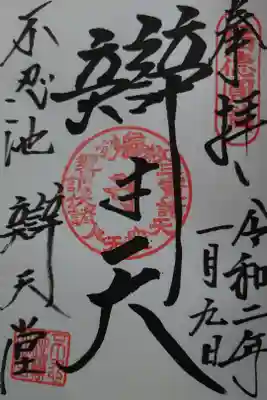 奉拝
令和二年
一月九日
辯才天
不忍池
辯天堂